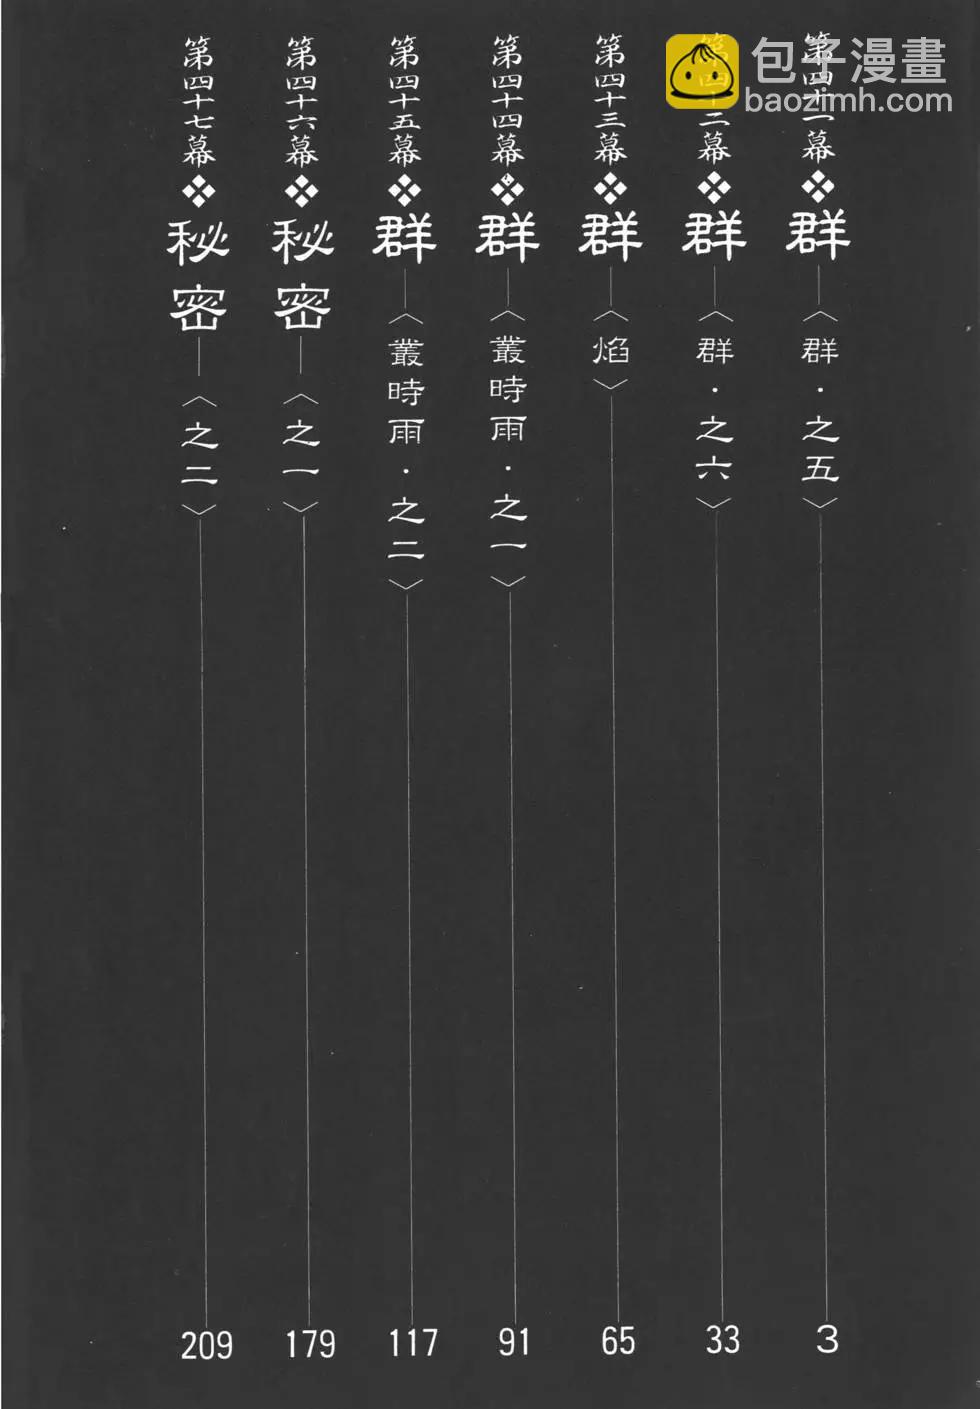 包子漫畫
baozimh.com
第四十一幕❖群—〈群・之五〉3
第四十二幕❖群—〈群・之六〉33
第四十三幕❖群—〈焰〉65
第四十四幕❖群—〈叢時雨・之一〉91
第四十五幕❖群—〈叢時雨・之二〉117
第四十六幕❖秘密—〈之一〉179
第四十七幕❖秘密—〈之二〉209